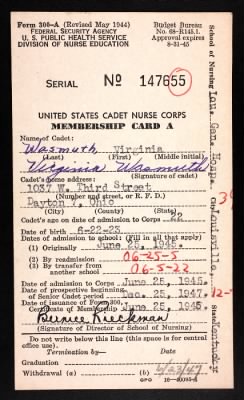 Form 300-A (Revised May 1944)
FEDERAL SECURITY AGENCY
U. S. PUBLIC HEALTH SERVICE
DIVISION OF NURSE EDUCATION
Budget Bureau
No. 68-R145.1.
Approval expires
8-31-45
SERIAL No 147655
UNITED STATES CADET NURSE CORPS
MEMBERSHIP CARD A
Name of Cadet:
Wasmuth, Virginia
(Last) (First) (Middle initial)
Virginia Wasmuth
(Signature of cadet)
Cadet's home address:
1037 W. Third Street
(Number and street, or R. F. D.)
Dayton 7, Ohio
(City) (County) (State)
Cadet's age on date of admission to Corps 22
Date of birth 6-22-23
Dates of admission to school: (Fill in all that apply)
(1) Originally June 25, 1945.
(2) By readmission 06-25-5
(3) By transfer from another school 06-5-22
Date of admission to Corps June 25, 1945.
Date of prospective beginning of Senior Cadet period Dec. 25, 1947. 12-
Date of issuance of Form 300, Certificate of Membership June 25, 1945.
Bernice Rieckman
(Signature of Director of School of Nursing)
Do not write below this line (this space is for central office use).
Termination by— Date
Graduation
Withdrawal (a) (b) 6/23/47
GPO
School of Nursing Lou. Gen. Hosp.
City Louisville, State Kentucky